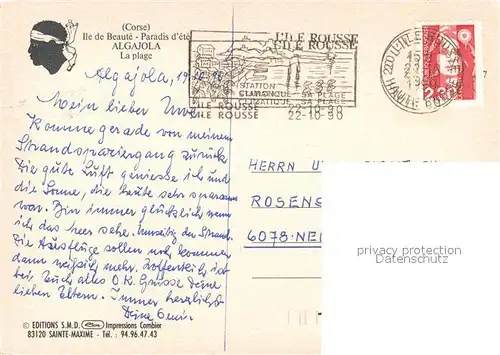 (Corse)
Ile de Beauté - Paradis d'été
ALGAJOLA
La plage
L'ILE ROUSSE
L'ILE ROUSSE
STATION
CLIMATIQUE SA PLAGE
L'ILE ROUSSE 22-10-90
L'ILE ROUSSE 22-10-90
220 L'ILE-ROUSSE
HAUTE CORSE
7
Algajola,
Mein lieber Uwe
Komme gerade von meinem
Strandspaziergang zurück
Die gute Luft geniesse ich und
die Sonne, die heute sehr sparsam
war. Bin immer glücklich wenn
ich das Meer sehe. den Strand.
Die Ausflüge sollen noch kommen
dann weiß ich mehr. Hoffentlich ist
bei Euch alles O.K. Grüsse Deine
lieben Eltern. Immer herzlichst
Deine Omi.
HERRN
ROSENG
6078-NEI
privacy protection
Datenschutz
© EDITIONS S.M.D. Impressions Combier
83120 SAINTE-MAXIME - Tél. : 94.96.47.43